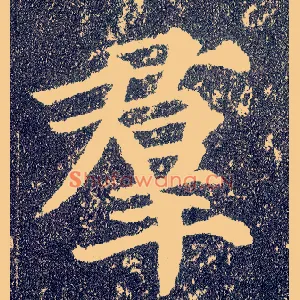 羣
Shufawang.cn